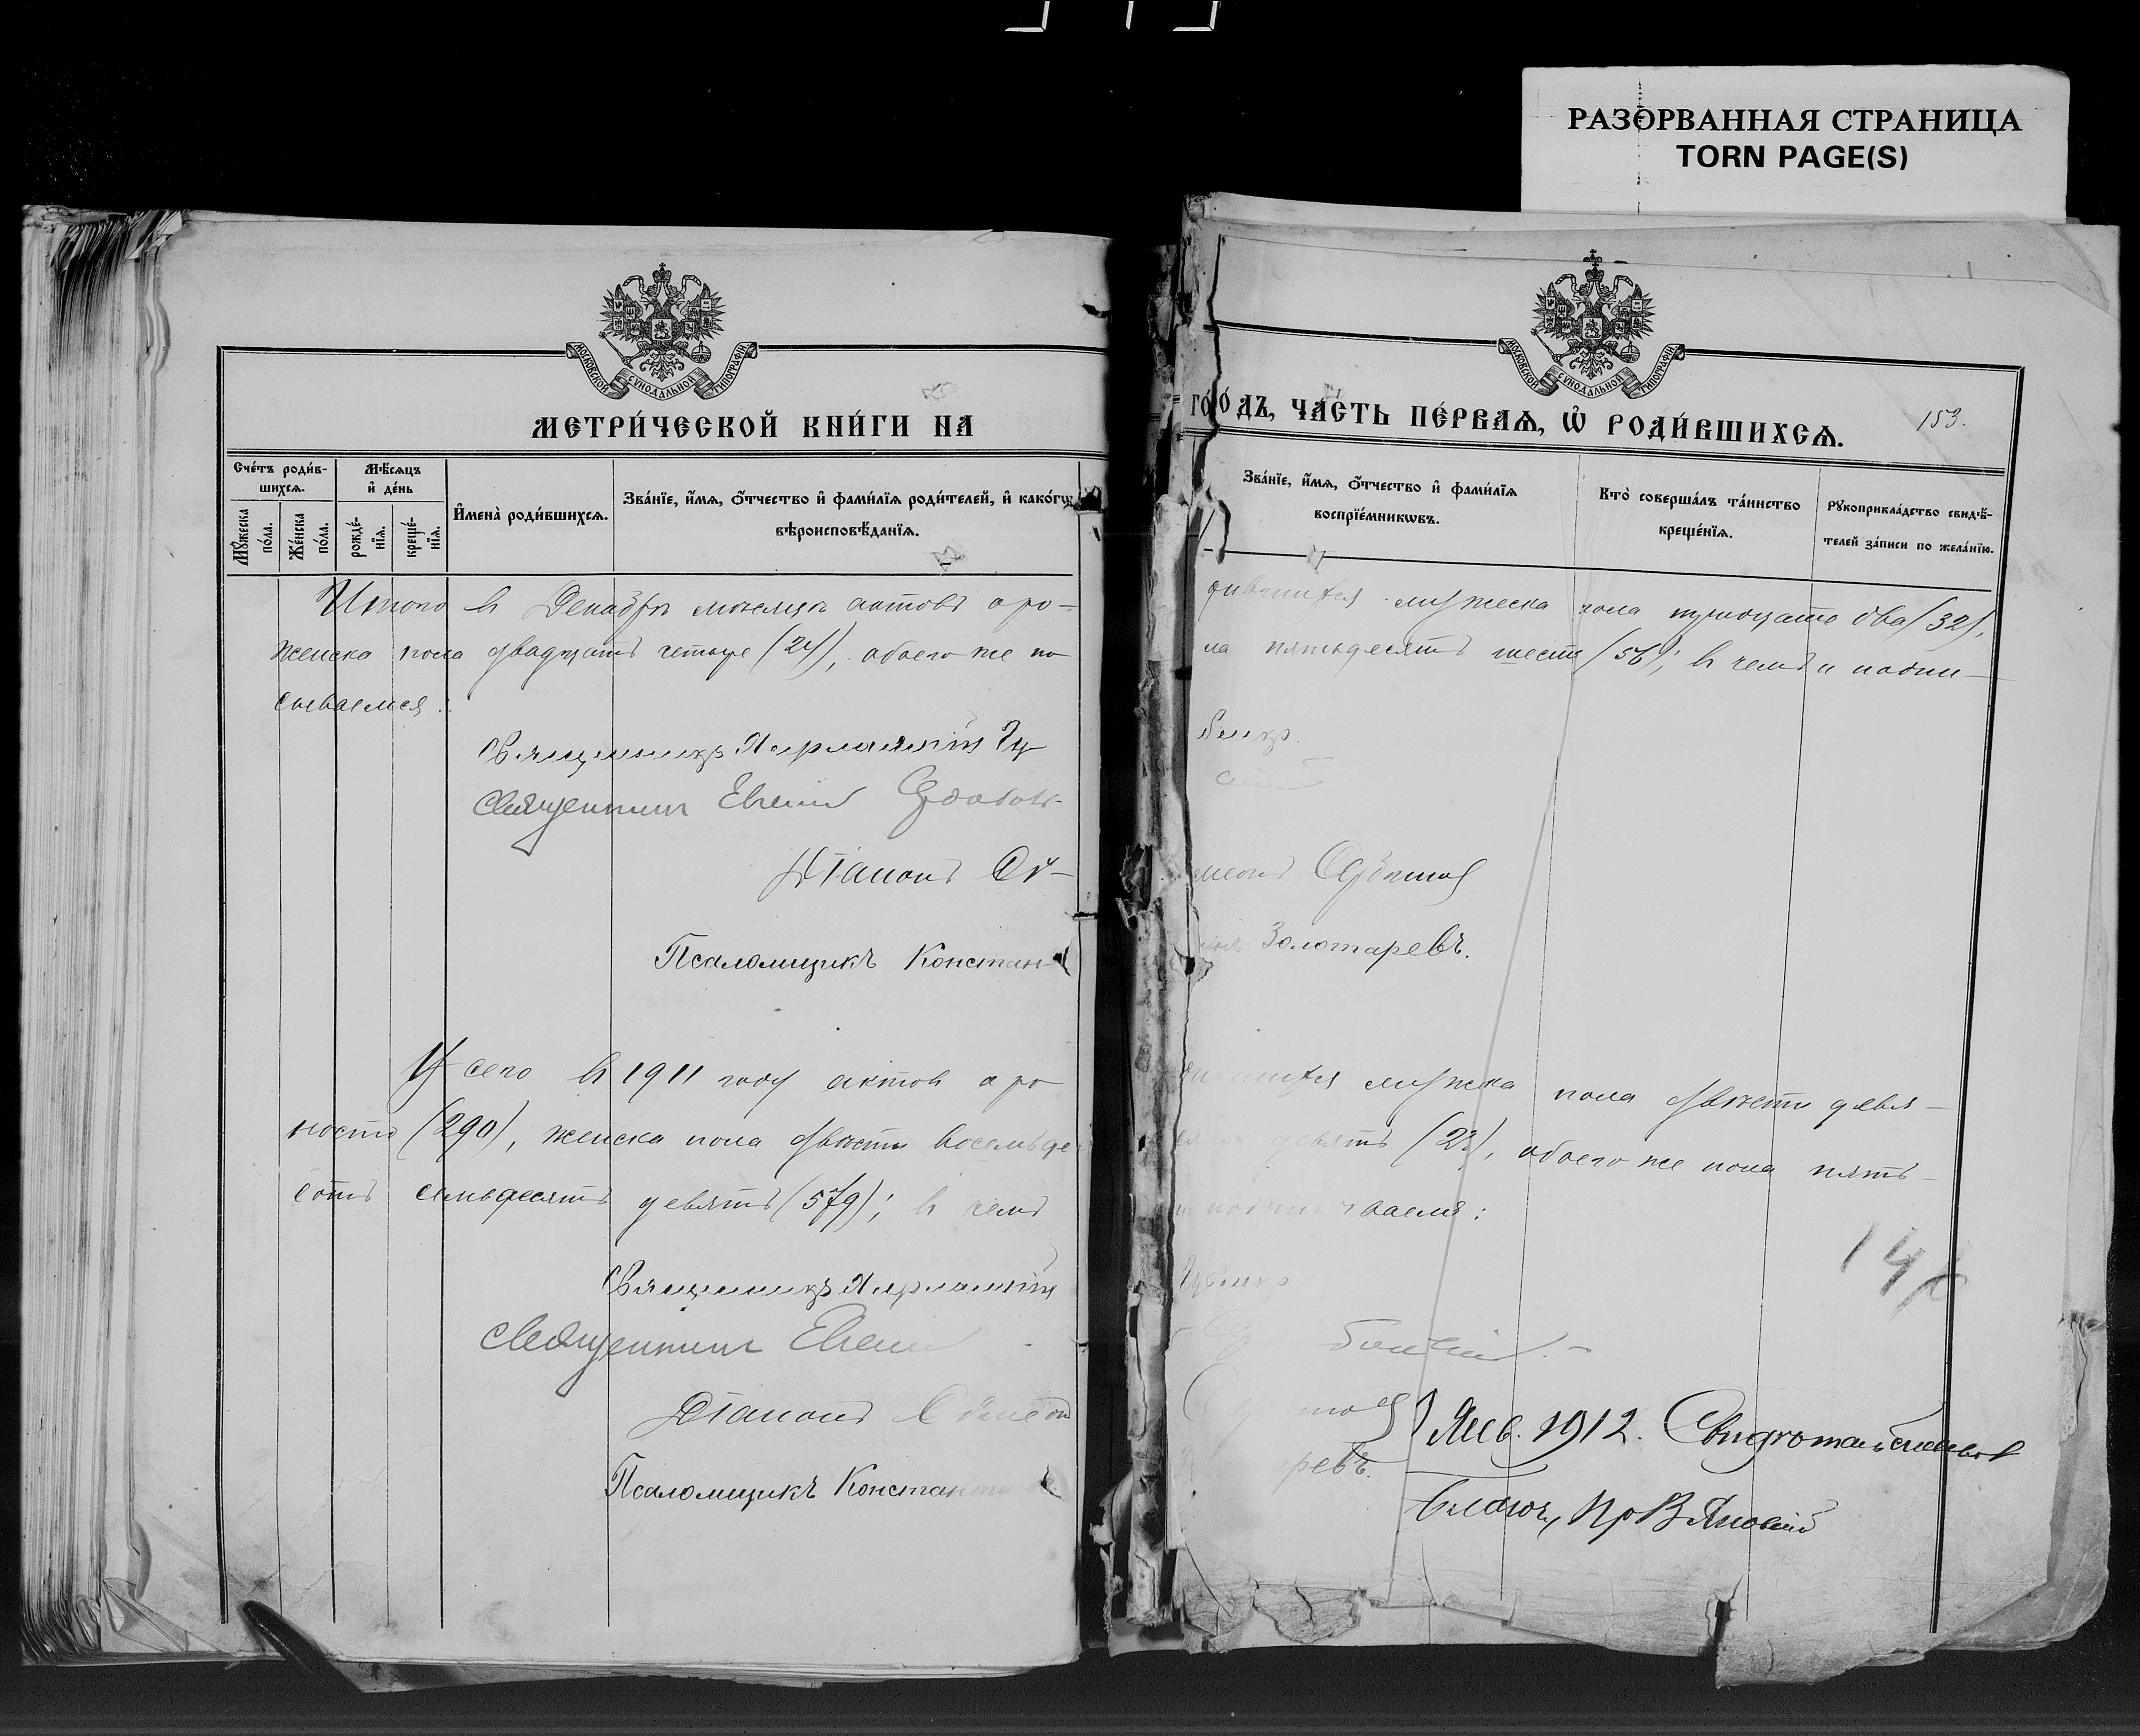 РАЗОРВАННАЯ СТРАНИЦА
TORN PAGE(S)
МОСКОВСКОЙ СѴНОДАЛЬНОЙ ТИПОГРАФІИ
МЕТРИ́ЧЕСКОЙ КНИ́ГИ НА
Сче́тъ роди́в-
шихсѧ.
Мꙋ́жеска по́ла.
Же́нска по́ла.
Мѣ́сѧцъ
и҆ де́нь
рожде́-
нїѧ.
креще́-
нїѧ.
И҆мена̀ роди́вшихсѧ.
Зва́нїе, и҆́мѧ, ѻ҆́тчество и҆ фами́лїѧ роди́телей, и҆ како́гѡ
вѣроисповѣ́данїѧ.
Итого въ Декабрѣ мѣсяцѣ актовъ о ро-
женска пола двадцать четыре (24), обоего же по
сываемся:
Священникъ
Священникъ Евгеній
Діаконъ Сѵ-
Псаломщикъ Констан-
Всего въ 1911 году актовъ о ро
носто (290), женска пола двѣсти восемьде
сотъ семьдесятъ девять (579); въ чемъ
Священникъ
Священникъ Евгеній
Діаконъ Сѵмеон
Псаломщикъ Константин
МОСКОВСКОЙ СѴНОДАЛЬНОЙ ТИПОГРАФІИ
ГО́ДЪ, ЧА́СТЬ ПЕ́РВАѦ, Ѡ҆ РОДИ́ВШИХСѦ.
153.
Зва́нїе, и҆́мѧ, ѻ҆́тчество и҆ фами́лїѧ
воспрїе́мникѡвъ.
Кто̀ соверша́лъ та́инство
креще́нїѧ.
Рꙋкоприкла́дство свидѣ́-
телей за́писи по жела́нїю.
дившихся мужеска пола тридцать два (32),
ла пятьдесятъ шесть (56); въ чемъ и подпи-
меонъ
Золотаревъ.
мужска пола двѣсти девя-
девять (2, обоего же пола пять-
ваемся:
14
ревъ.
Янв. 1912. Свидѣтельствовалъ
Благоч. Пр В